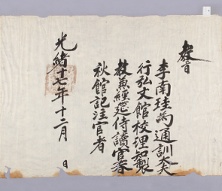 敎旨
李南珪爲通訓大夫
行弘文館校理知製
敎兼經筵侍讀官春
秋館記注官者
光緖十七年十二月　日